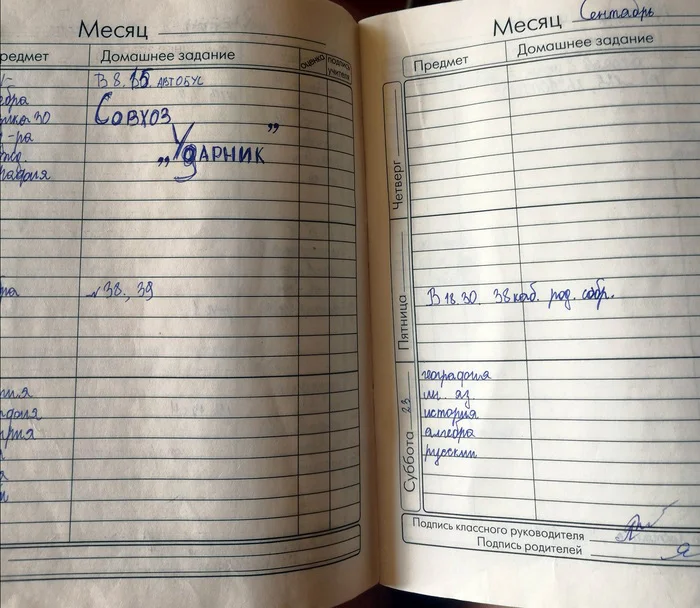 Месяц
редмет Домашнее задание оценка подпись учителя
В 8.15. АВТОБУС
ебра
ика 30 СОВХОЗ
-ра
„УДАРНИК”
рафия
ра № 38, 39
ия
рия
Месяц Сентябрь
Предмет Домашнее задание
Четверг
Пятница
В 18.30. 38 каб. род. собр.
Суббота 23
география
ин. яз
история
алгебра
русский
Подпись классного руководителя
Подпись родителей